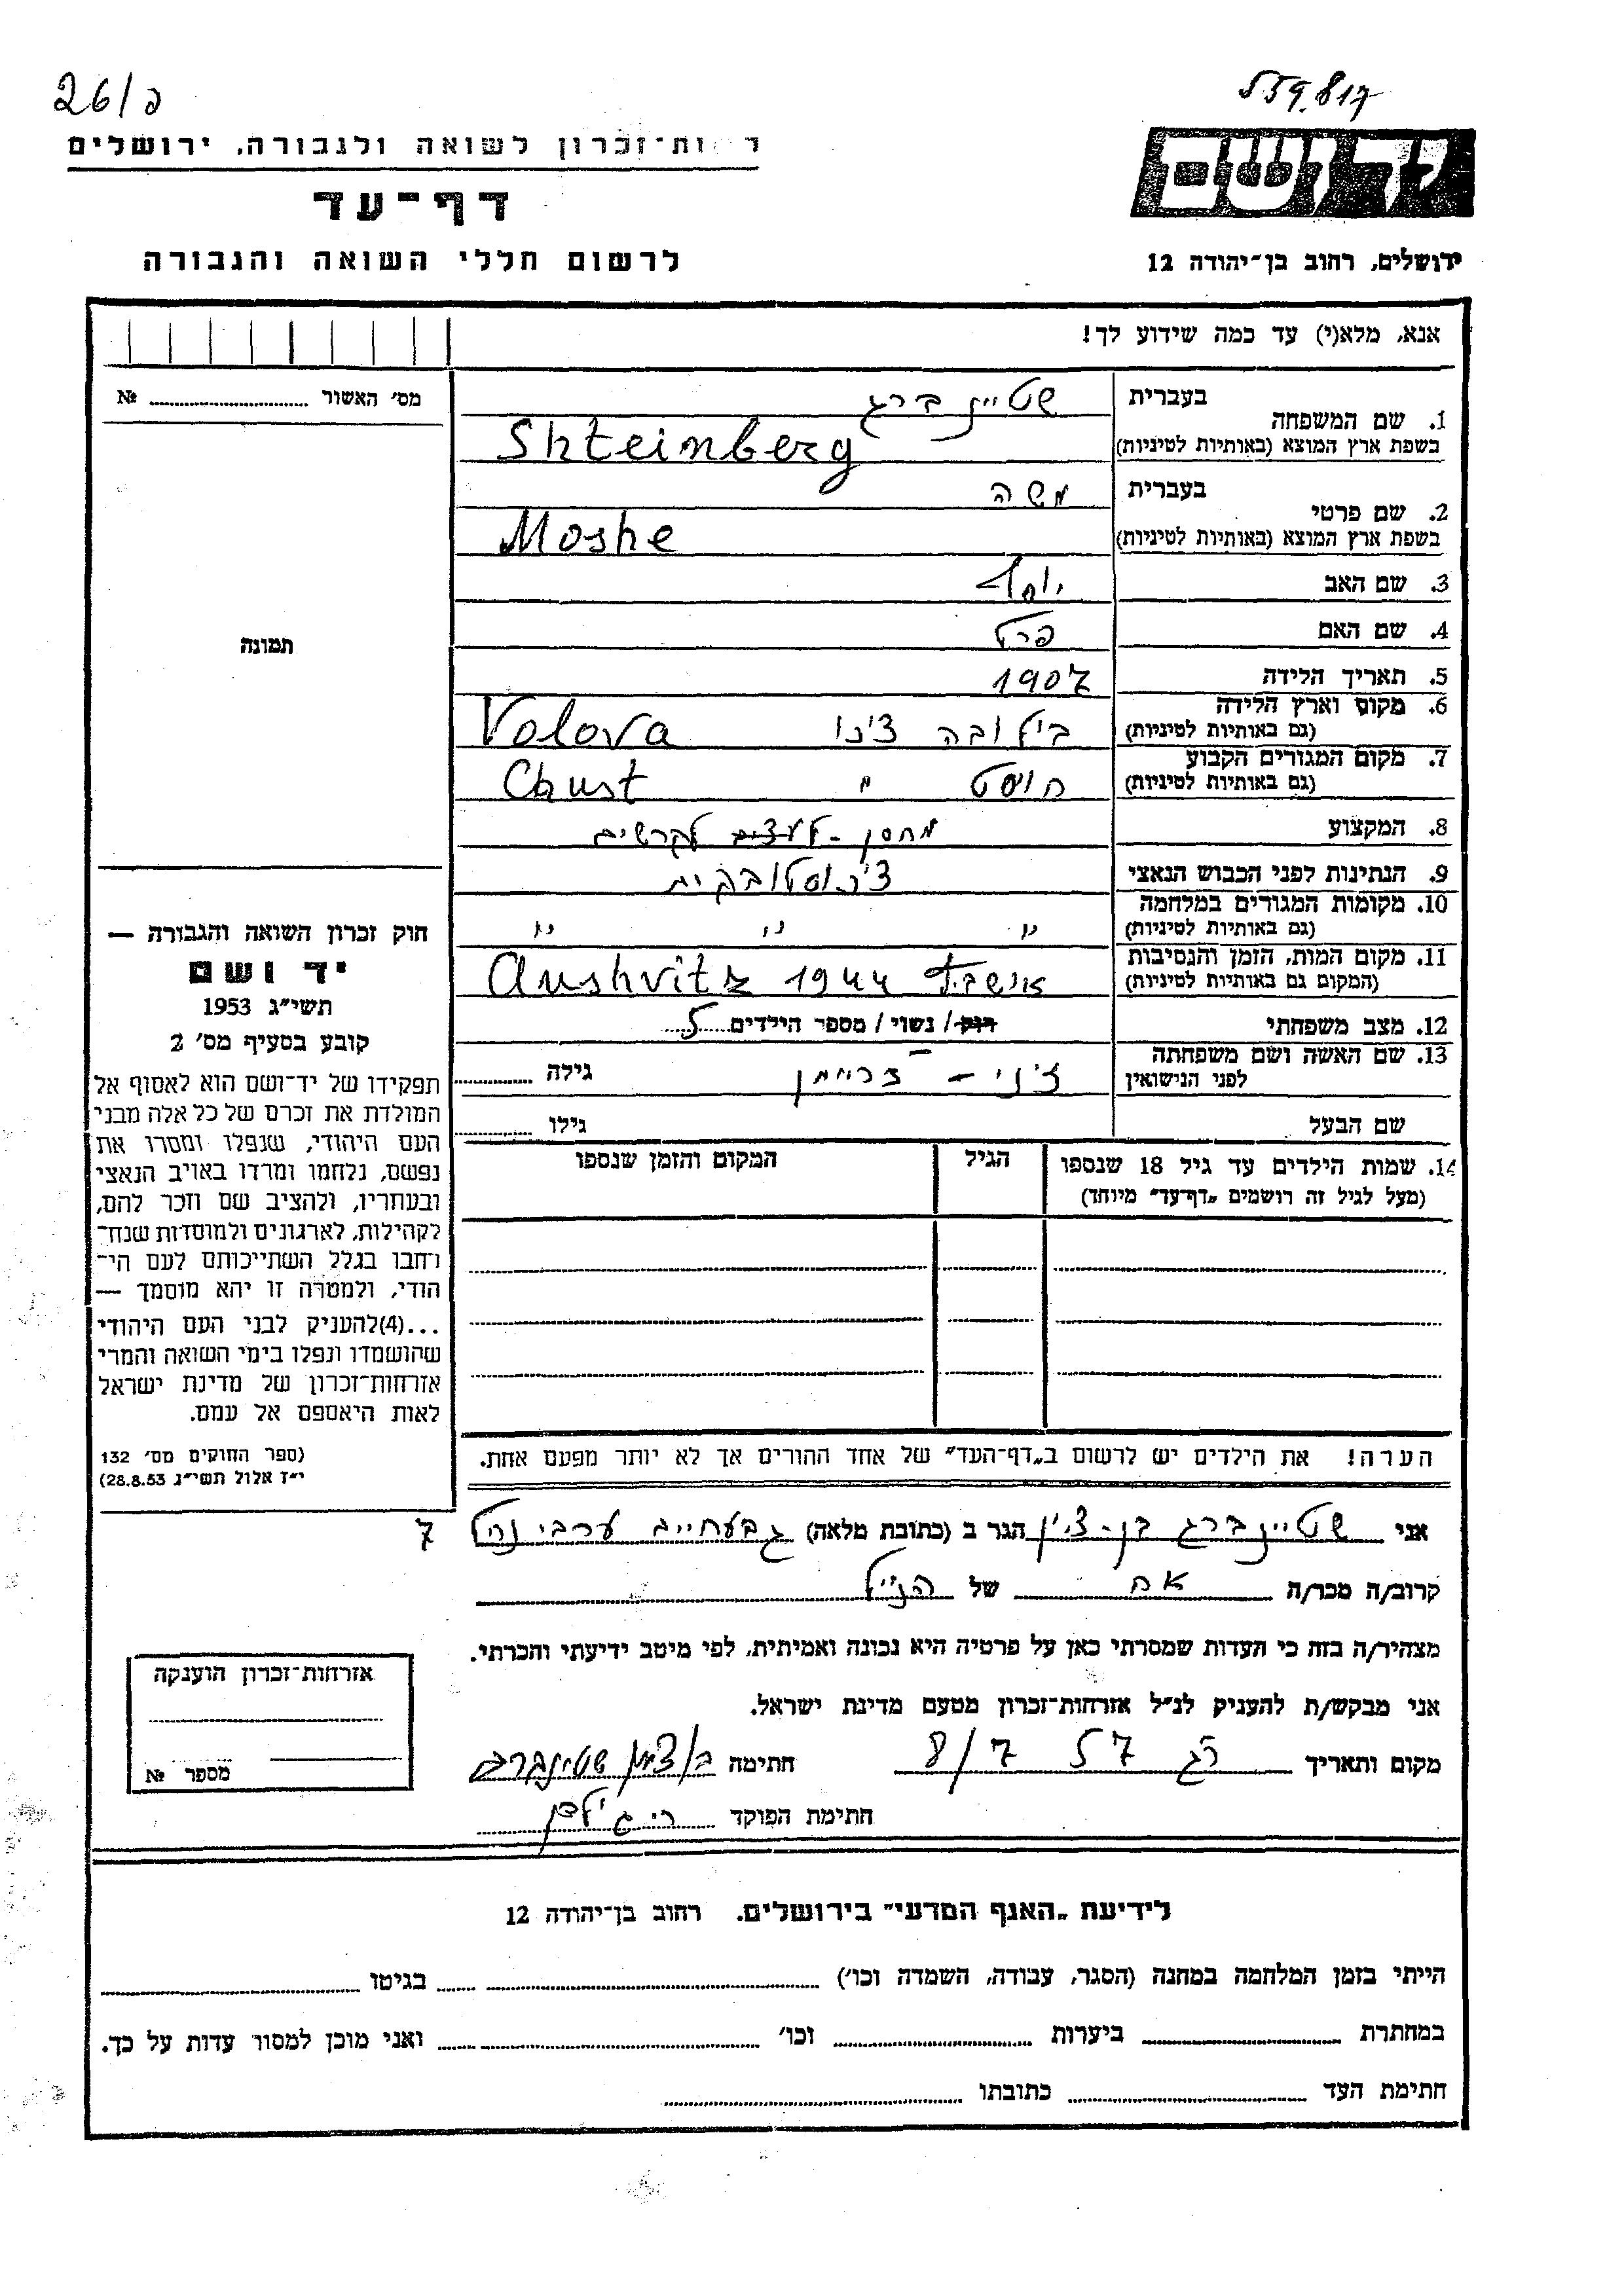 26/כ
559.817
ות־זכרון לשואה ולגבורה, ירושלים
דף־עד
לרשום חללי השואה והגבורה
יד ושם
ירושלים, רחוב בן־יהודה 12
אנא, מלא(י) עד כמה שידוע לך!
מס׳ האשור № 
תמונה
1. שם המשפחה
בעברית שטיינברג
בשפת ארץ המוצא (באותיות לטיניות) Shteinberg
2. שם פרטי
בעברית משה
בשפת ארץ המוצא (באותיות לטיניות) Moshe
3. שם האב
4. שם האם
5. תאריך הלידה 1907
6. מקום וארץ הלידה
(גם באותיות לטיניות) צ׳כו Volova
7. מקום המגורים הקבוע
(גם באותיות לטיניות) חוסט " Chust
8. המקצוע מחסן - לעצים לקרשים
9. הנתינות לפני הכבוש הנאצי
10. מקומות המגורים במלחמה
(גם באותיות לטיניות) " " "
11. מקום המות, הזמן והנסיבות
(המקום גם באותיות לטיניות) Aushvitz 1944
12. מצב משפחתי רווק / נשוי / מספר הילדים 5
13. שם האשה ושם משפחתה
לפני הנישואין גילה
שם הבעל גילו
14. שמות הילדים עד גיל 18 שנספו
(מעל לגיל זה רושמים „דף־עד״ מיוחד)
הגיל
המקום והזמן שנספו
הערה! את הילדים יש לרשום ב„דף־העד״ של אחד ההורים אך לא יותר מפעם אחת.
חוק זכרון השואה והגבורה —
יד ושם
תשי״ג 1953
קובע בסעיף מס׳ 2
תפקידו של יד־ושם הוא לאסוף אל
המולדת את זכרם של כל אלה מבני
העם היהודי, שנפלו ומסרו את
נפשם, נלחמו ומרדו באויב הנאצי
ובעוזריו, ולהציב שם וזכר להם,
לקהילות, לארגונים ולמוסדות שנח־
רחבו בגלל השתייכותם לעם הי־
הודי, ולמטרה זו יהא מוסמך —
...(4)להעניק לבני העם היהודי
שהושמדו ונפלו בימי השואה והמרי
אזרחות־זכרון של מדינת ישראל
לאות היאספם אל עמם.
(ספר החוקים מס׳ 132
י״ז אלול תשי״ג 28.8.53)
אני שטיינברג בן-ציון הגר ב (כתובת מלאה) גבעת 7
קרוב/ה מכר/ה אח של הנ״ל
מצהיר/ה בזה כי העדות שמסרתי כאן על פרטיה היא נכונה ואמיתית, לפי מיטב ידיעתי והכרתי.
אני מבקש/ת להעניק לנ״ל אזרחות־זכרון מטעם מדינת ישראל.
מקום ותאריך רג 8/7 57 חתימה ב/ציון שטיינברג
חתימת הפוקד
אזרחות־זכרון הוענקה
מספר №
לידיעת „האגף המדעי״ בירושלים, רחוב בן־יהודה 12
הייתי בזמן המלחמה במחנה (הסגר, עבודה, השמדה וכו׳) בגיטו
במחתרת ביערות וכו׳ ואני מוכן למסור עדות על כך.
חתימת העד כתובתו